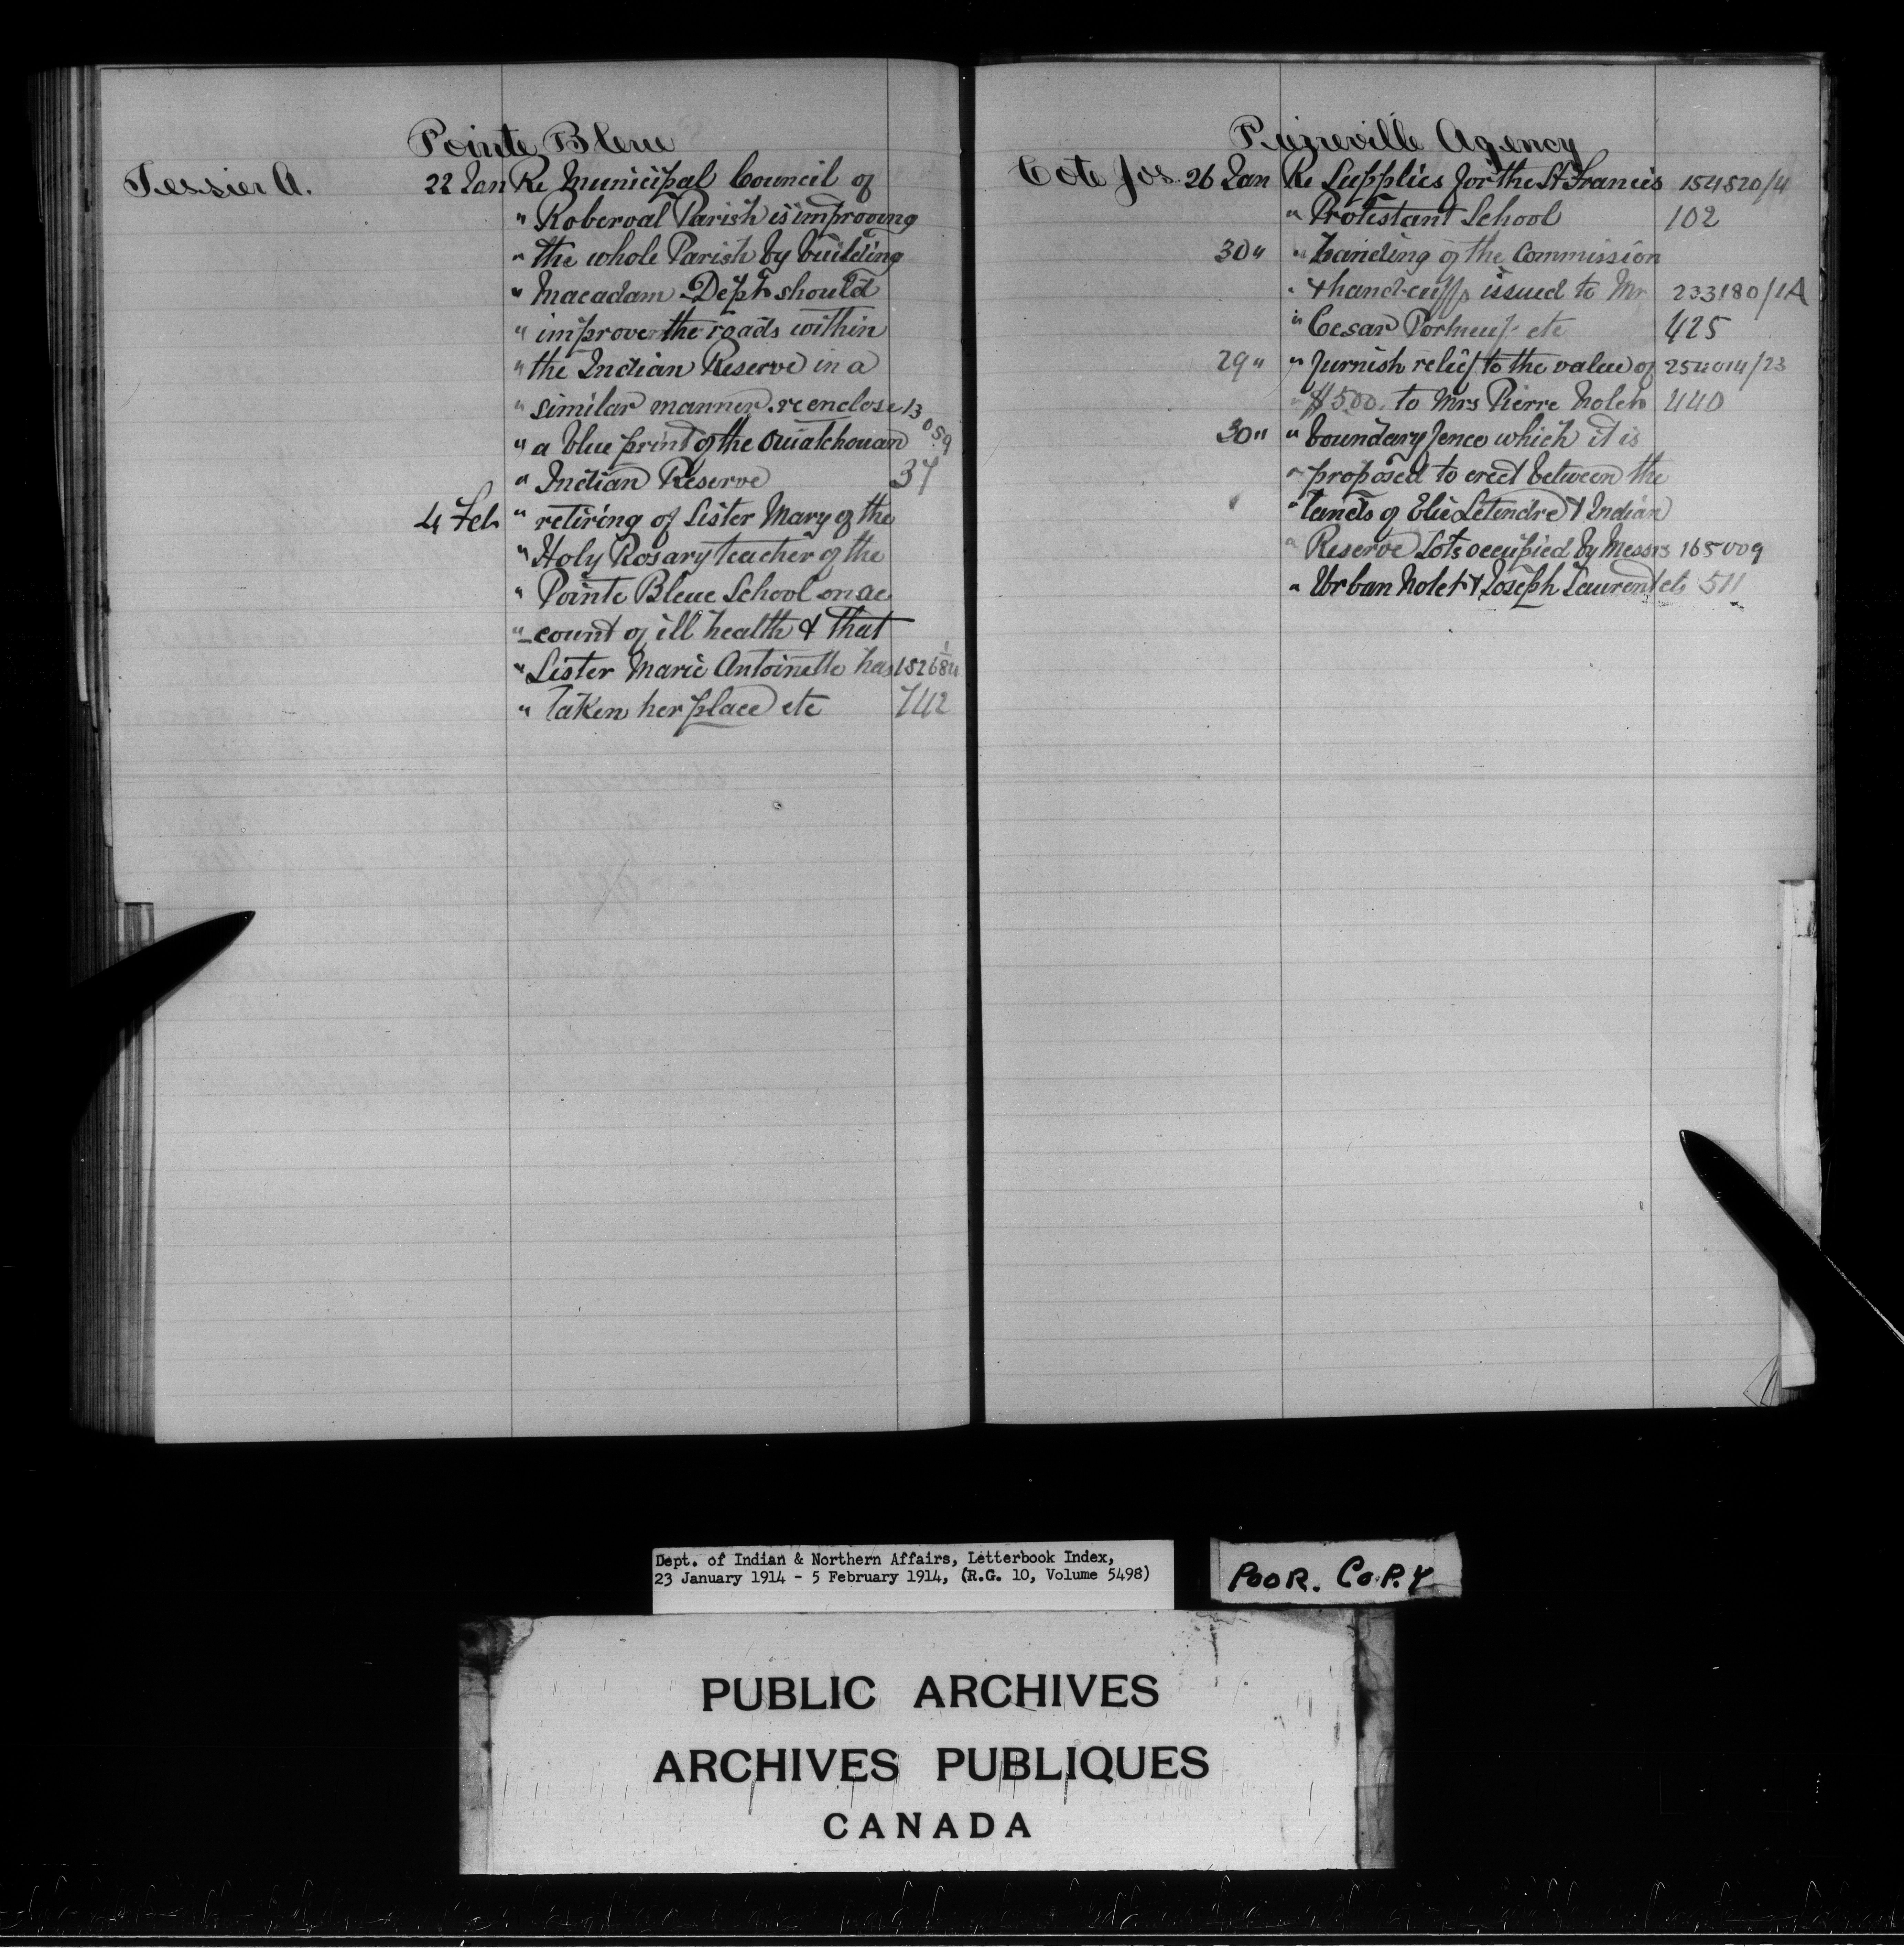 Pointe Bleue
Tessier A. 22 Jan Re Municipal Council of
" Roberval Parish is improving
" the whole Parish by building
" Macadam Dept should
" improve the roads within
" the Indian Reserve in a
" similar manner. re enclose 13
" a blue print of the Ouiatchouan 059
" Indian Reserve 37
4 Feb " retiring of Sister Mary of the
" Holy Rosary teacher of the
" Pointe Bleue School on ac
" count of ill health & that
" Sister Marie Antoinette has 152684/1
" taken her place etc 742
Pierreville Agency
Cote Jos. 26 Jan Re Supplies for the St Francis 154520/4
" Protestant School 102
30 " " handing of the Commission
" & hand-cuffs issued to Mr 233180/1A
" Cesar Portneuf etc 425
29 " " furnish relief to the value of 254014/23
" $5.00. to Mrs Pierre Nolet 440
30 " " boundary fence which it is
" proposed to erect between the
" lands of Elie Letendre & Indian
" Reserve Lots occupied by Messrs 165009
" Urban Nolet & Joseph Laurent etc 511
Dept. of Indian & Northern Affairs, Letterbook Index,
23 January 1914 - 5 February 1914, (R.G. 10, Volume 5498)
POOR. COPY
PUBLIC ARCHIVES
ARCHIVES PUBLIQUES
CANADA